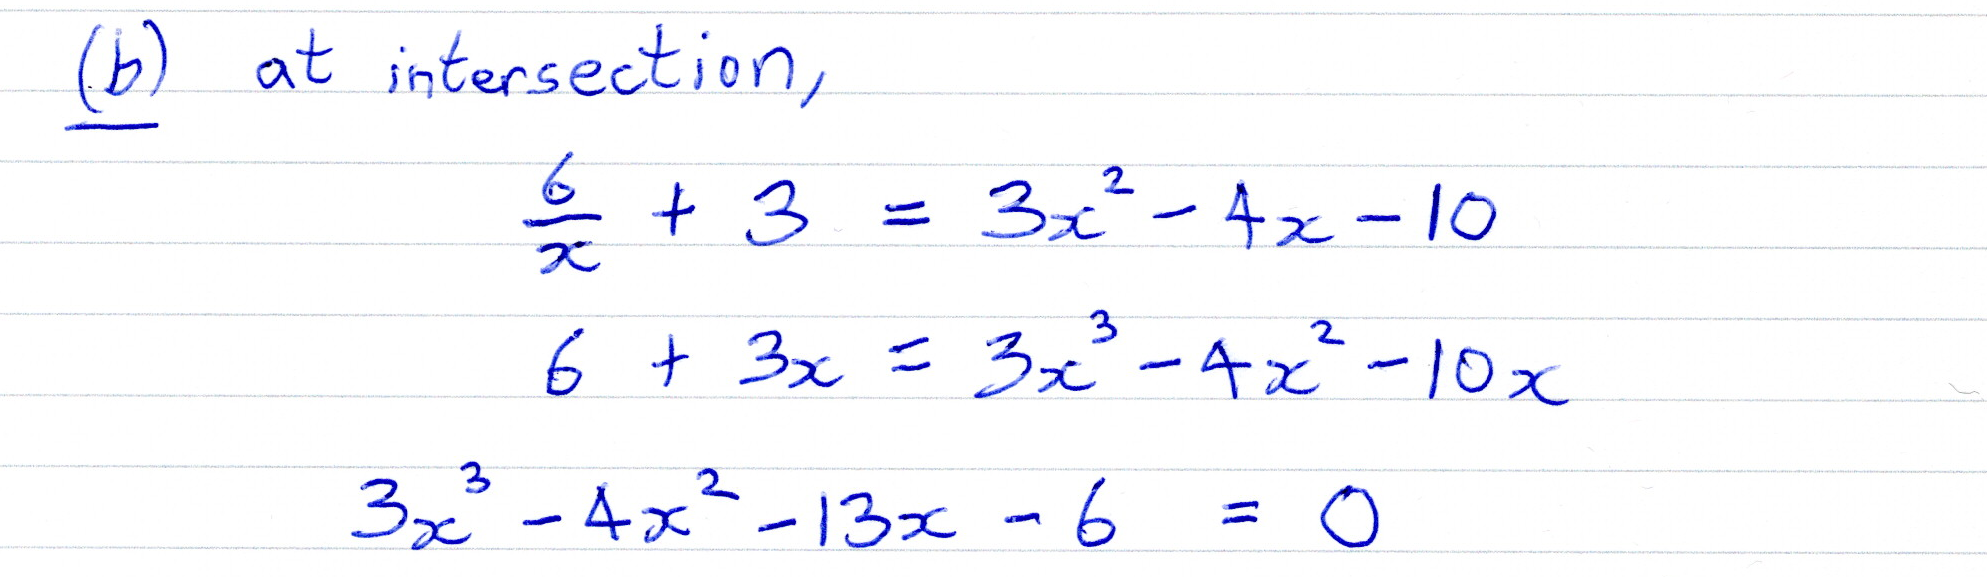 (b) at intersection,
6/x + 3 = 3x² - 4x - 10
6 + 3x = 3x³ - 4x² - 10x
3x³ - 4x² - 13x - 6 = 0